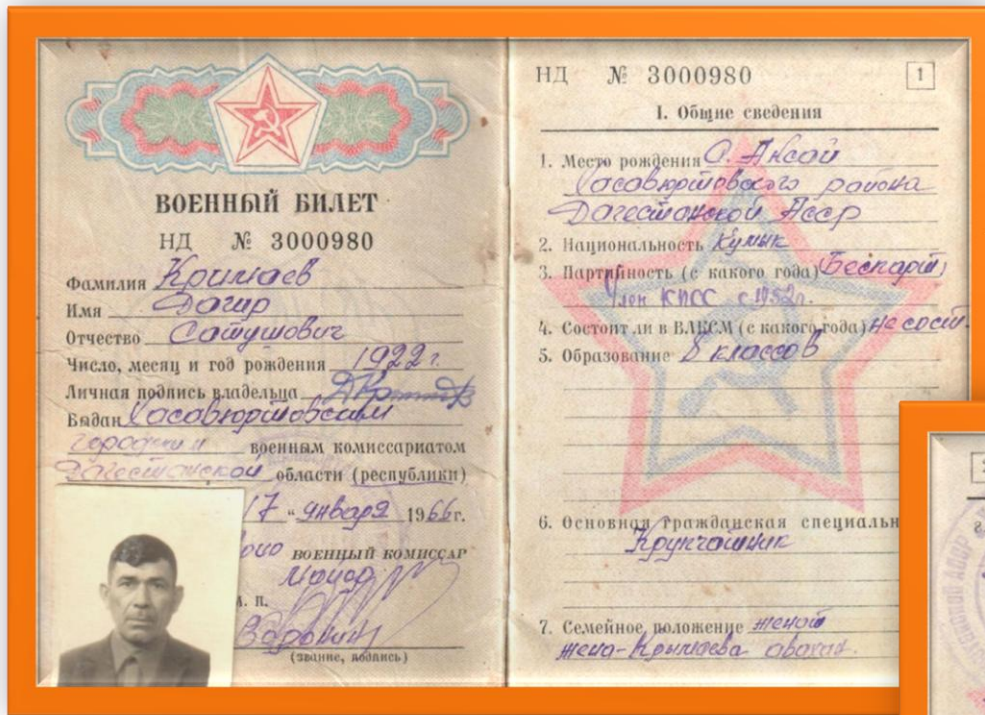 ВОЕННЫЙ БИЛЕТ
НД № 3000980
Фамилия Кримаев
Имя Дагир
Отчество Сатушович
Число, месяц и год рождения 1922 г.
Личная подпись владельца
Выдан Хасавюртовским
городским военным комиссариатом
Дагестанской области (республики)
17 " января 1966 г.
ВОЕННЫЙ КОМИССАР
Майор
М. П.
(звание, подпись)
НД № 3000980
1
I. Общие сведения
1. Место рождения С. Аксай
Хасавюртовского района
Дагестанской Асср
2. Национальность Кумык
3. Партийность (с какого года) Беспарт,
Член КПСС с 1952 г.
4. Состоит ли в ВЛКСМ (с какого года) не сост.
5. Образование 8 классов
6. Основная гражданская специальн
7. Семейное положение женат
жена - Крымаева